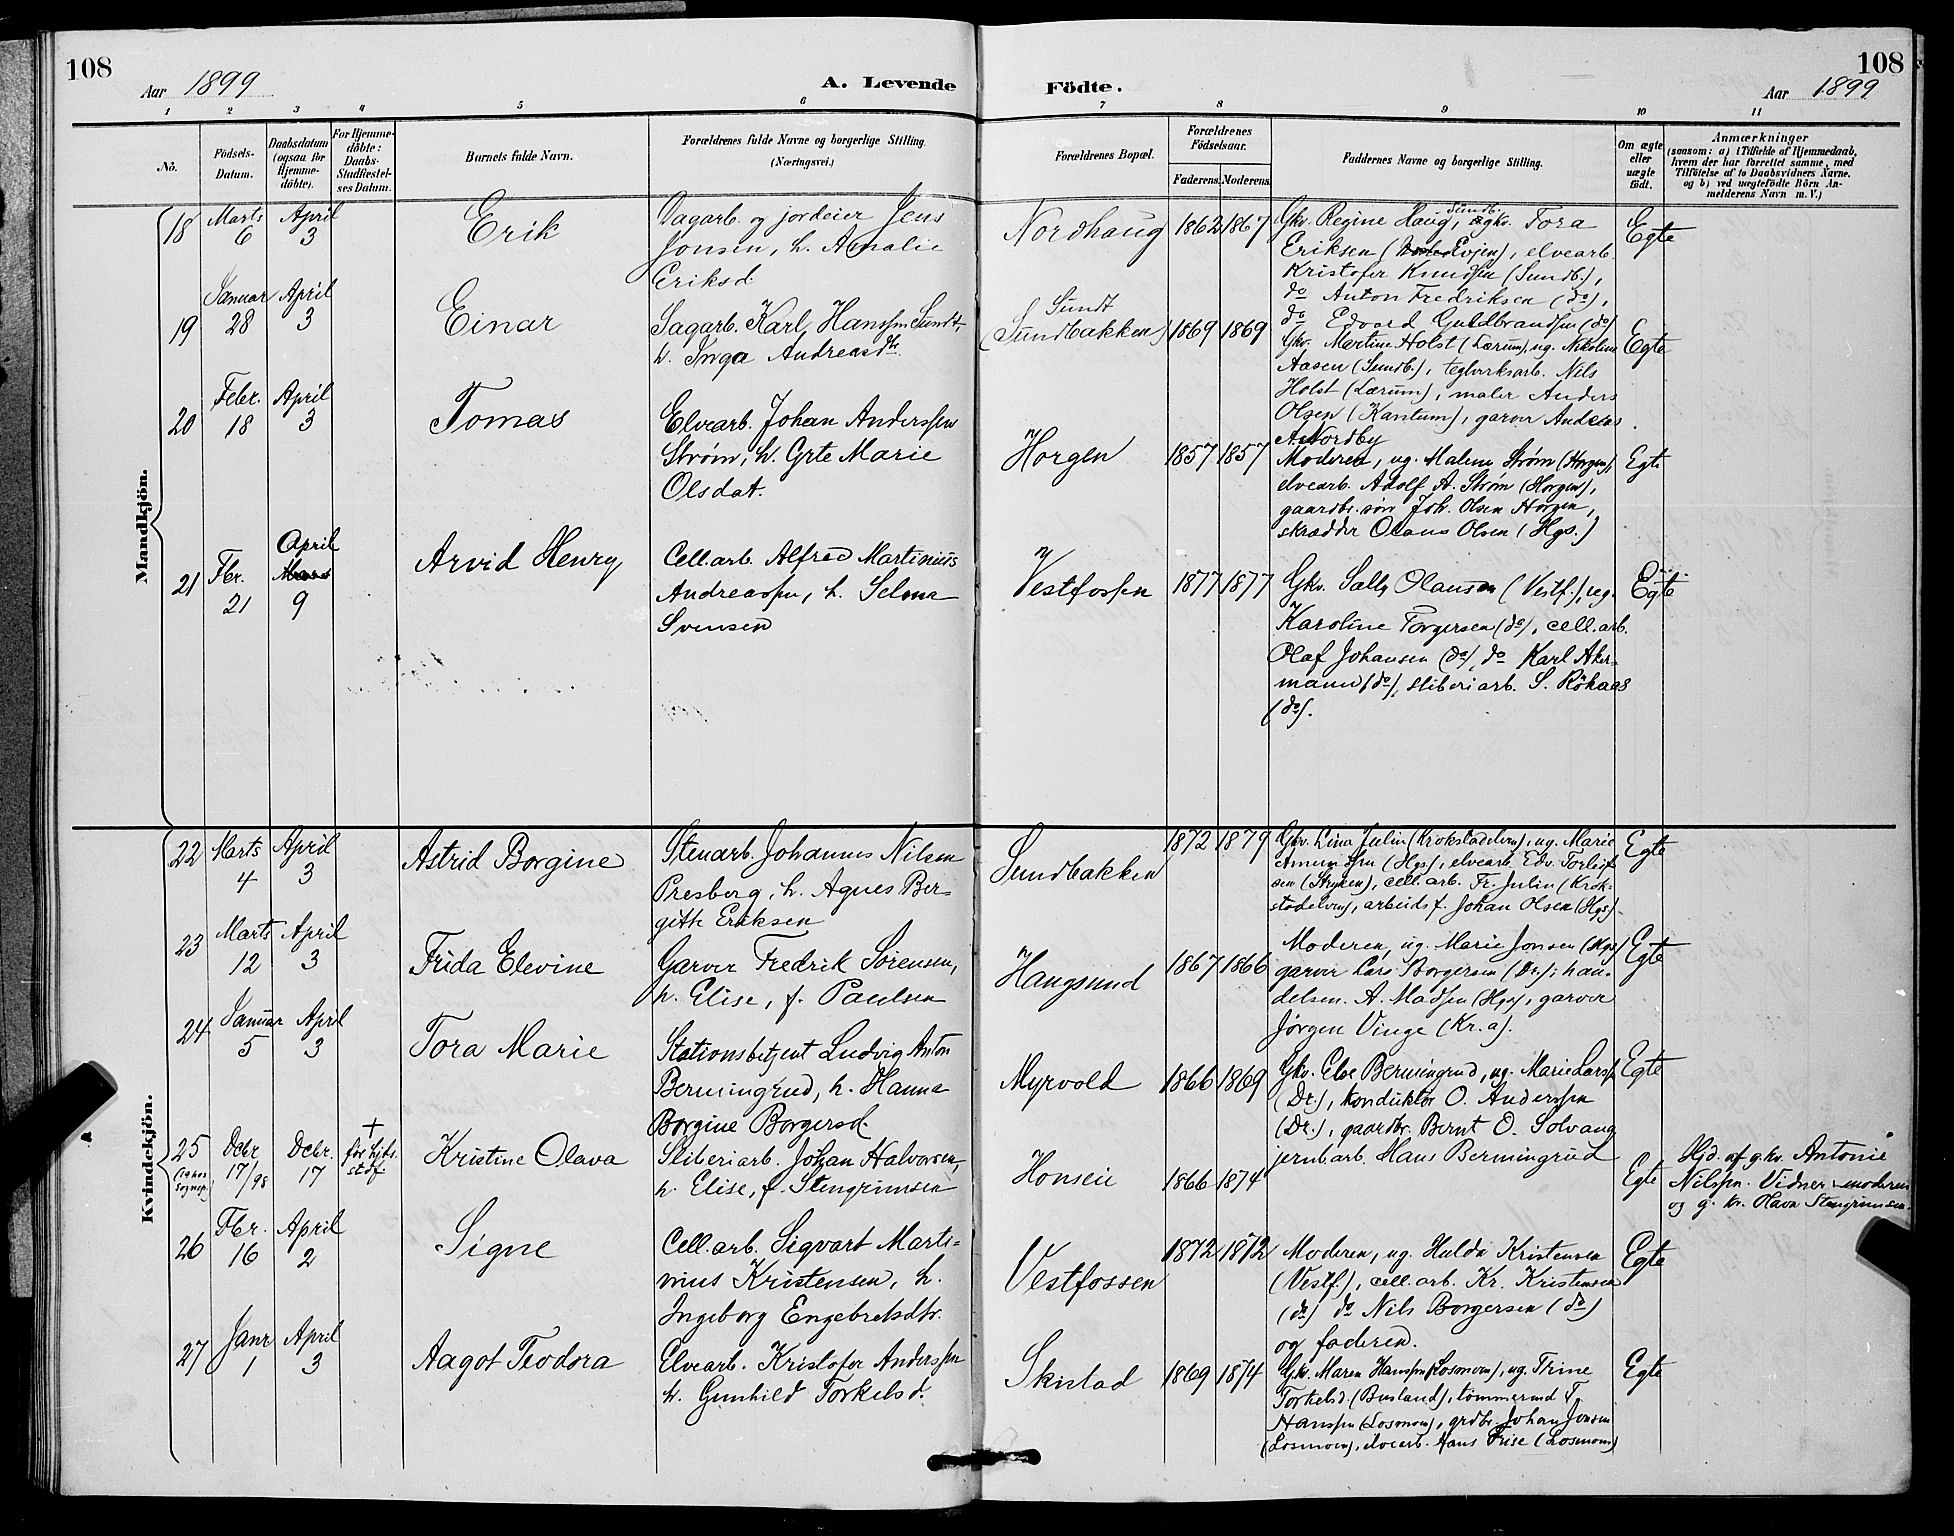 108
Aar 1899
A. Levende
Födte.
108
Aar 1899
1 2 3 4 5 6 7 8 9 10 11
No.
Födsels-
Datum.
Daabsdatum
(ogsaa for
Hjemme-
döbte).
For Hjemme-
döbte:
Daabs-
Stadfæstel-
ses Datum.
Barnets fulde Navn.
Forældrenes fulde Navne og borgerlige Stilling.
(Næringsvei.)
Forældrenes Bopæl.
Forældrenes
Födselsaar.
Faderens. Moderens.
Faddernes Navne og borgerlige Stilling.
Om ægte
eller
uægte
födt.
Anmærkninger
(saasom: a) i Tilfælde af Hjemmedaab,
hvem der har forrettet samme, med
Tilföielse af to Daabsvidners Navne.
og b) ved uægtefödte Börn An-
melderens Navn m. V.)
Mandkjön.
18
Marts
6
April
3
Erik
Dagarb. og jordeier Jens
Jonsen, h. Amalie
Eriksd
Nordhaug
1862 1867
Gkv. Regine Haug, Sundb. ugkv. Tora
Eriksen (Evjen), elvearb.
Kristofer Knudsen (Sundb.),
do Anton Fredriksen (do),
do Edvard Guldbrandsen (do)
Egte
19
Januar
28
April
3
Einar
Sagarb. Karl Hanssen Sundt
h. Inga Andreasdtr
Sundt
(Sundbakken)
1869 1869
Gkv. Martine Holst (Lærum), ug. Nikoline
Aasen (Sundb.), teglverksarb. Nils
Holst (Lærum), maler Anders
Olsen (Kantum), garver Andreas
A. Nordby
Egte
20
Febr.
18
April
3
Tomas
Elvearb. Johan Anderssen
Strøm, h. Grte Marie
Olsdat.
Horgen
1857 1857
Moderen, ug. Malene Strøm (Horgen),
elvearb. Adolf A. Strøm (Horgen),
gaardbr.søn Joh. Olsen Horgen,
skrædder Olaus Olsen (Hgs.)
Egte
21
Fbr.
21
April
Mars
9
Arvid Henry
Cell.arb. Alfred Martinius
Andreassen, h. Selma
Svensen
Vestfossen
1877 1877
Gkv. Sally Olausen (Vestf.), ug.
Karoline Torgersen (do), cell.arb.
Olaf Johansen (do), do Karl Aker-
mann (do), sliberiarb. S. Rökaas
(do).
Egte
Kvindekjön.
22
Marts
4
April
3
Astrid Borgine
Stenarb. Johannes Nilsen
Presberg, h. Agnes Ber-
gitte Eriksen
Sundbakken
1872 1879
Gkv. Lina Julin (Krokstadelven), ug. Marie
Amundsen (Hgs), elvearb. Edv. Torleif-
sen (Stryken), cell.arb. Fr. Julin (Krok-
stadelven), arbeidsf. Johan Olsen (Hgs).
Egte
23
Marts
12
April
3
Frida Elevine
Garver Fredrik Sörensen,
h. Elise, f. Paulsen
Haugsund
1867 1866
Moderen, ug. Marie Jonsen (Hgs)
garver Lars Borgersen (Dr.), han-
delsm. A. Madsen (Hgs), garver
Jörgen Vinge (Kr.a).
Egte
24
Januar
5
April
3
Tora Marie
Stationsbetjent Ludvig Anton
Bermingrud, h. Hanna
Borgine Borgersd.
Myrvold
1866 1869
Gkv. Else Bermingrud, ug. Marie Larss.
(Dr.), konduktör O. Anderssen
(Dr.), gaardbr. Bernt O. Solvang
jernb.arb. Hans Bermingrud
Egte
25
Debr
17/98
Debr.
17
+
før hjds.
stdf.
Kristine Olava
Sliberiarb. Johan Halvorsen,
h. Elise, f. Stengrimsen
Honsein
1866 1874
Egte
Hjd. af g.kv. Antonie
Nilssen. Vidner moderen
og g. kv. Olava Stengrimsen.
26
Fbr.
16
April
2
Signe
Cell.arb. Sigvart Marti-
nius Kristensen, h.
Ingeborg Engebretsdtr.
Vestfossen
1872 1872
Moderen, ug. Hulda Kristensen
(Vestf.), cell.arb. Kr. Kristensen
(do) do Nils Borgersen (do)
og faderen.
Egte
27
Janr
1
April
3
Aagot Teodora
Elvearb. Kristofer Anderssen
h. Gunhild Torkelsd.
Skistad
1869 1874
Gkv. Maren Hanssen (Losmoen), ug. Trine
Torkelsd. (Busland), tömmermd T.
Hanssen (Losmoen), grdbr. Johan Jonsen
(Losmoen), elvearb. Hans Frise (Losmoen)
Egte